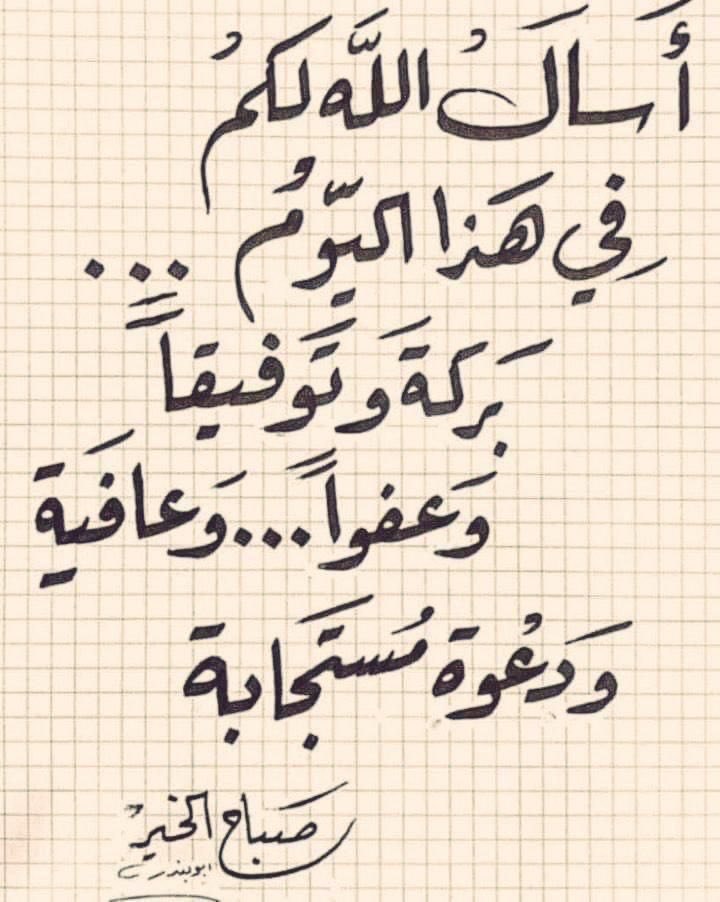 أَسأَلُ اللَّه لكمُ
فِي هَذا اليَّومُ ...
بَركة وَتَوفيقاً
وَعفواً...وَعافَية
وَدَعُوة مُستَجابة
صَباح الخير
ابوبندر